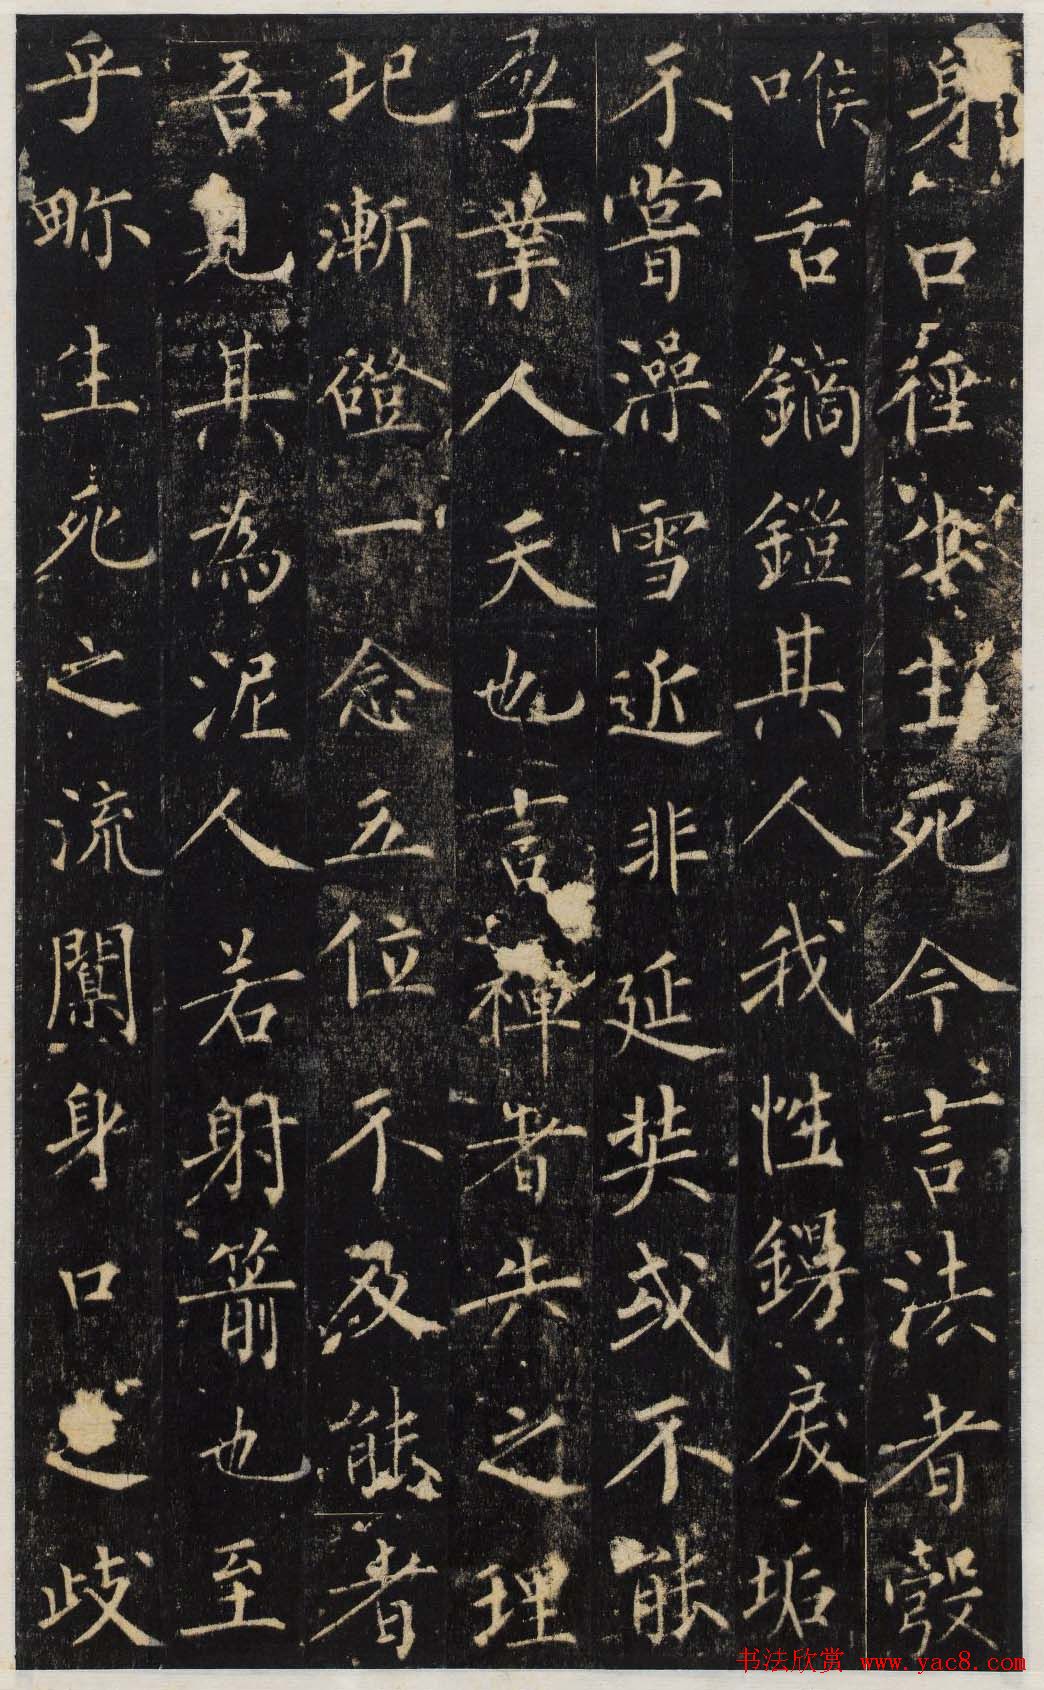 身口徑生死今言法者彀
喉舌鏑鎧其人我性戾垢
不嘗澡雪近非延奘或不能
業人天也言禪者失之理
圯漸磴一念五位不及能者
吾見其為泥人若射箭也至
乎畛生死之流闠身口之歧
书法欣赏 www.yac8.com